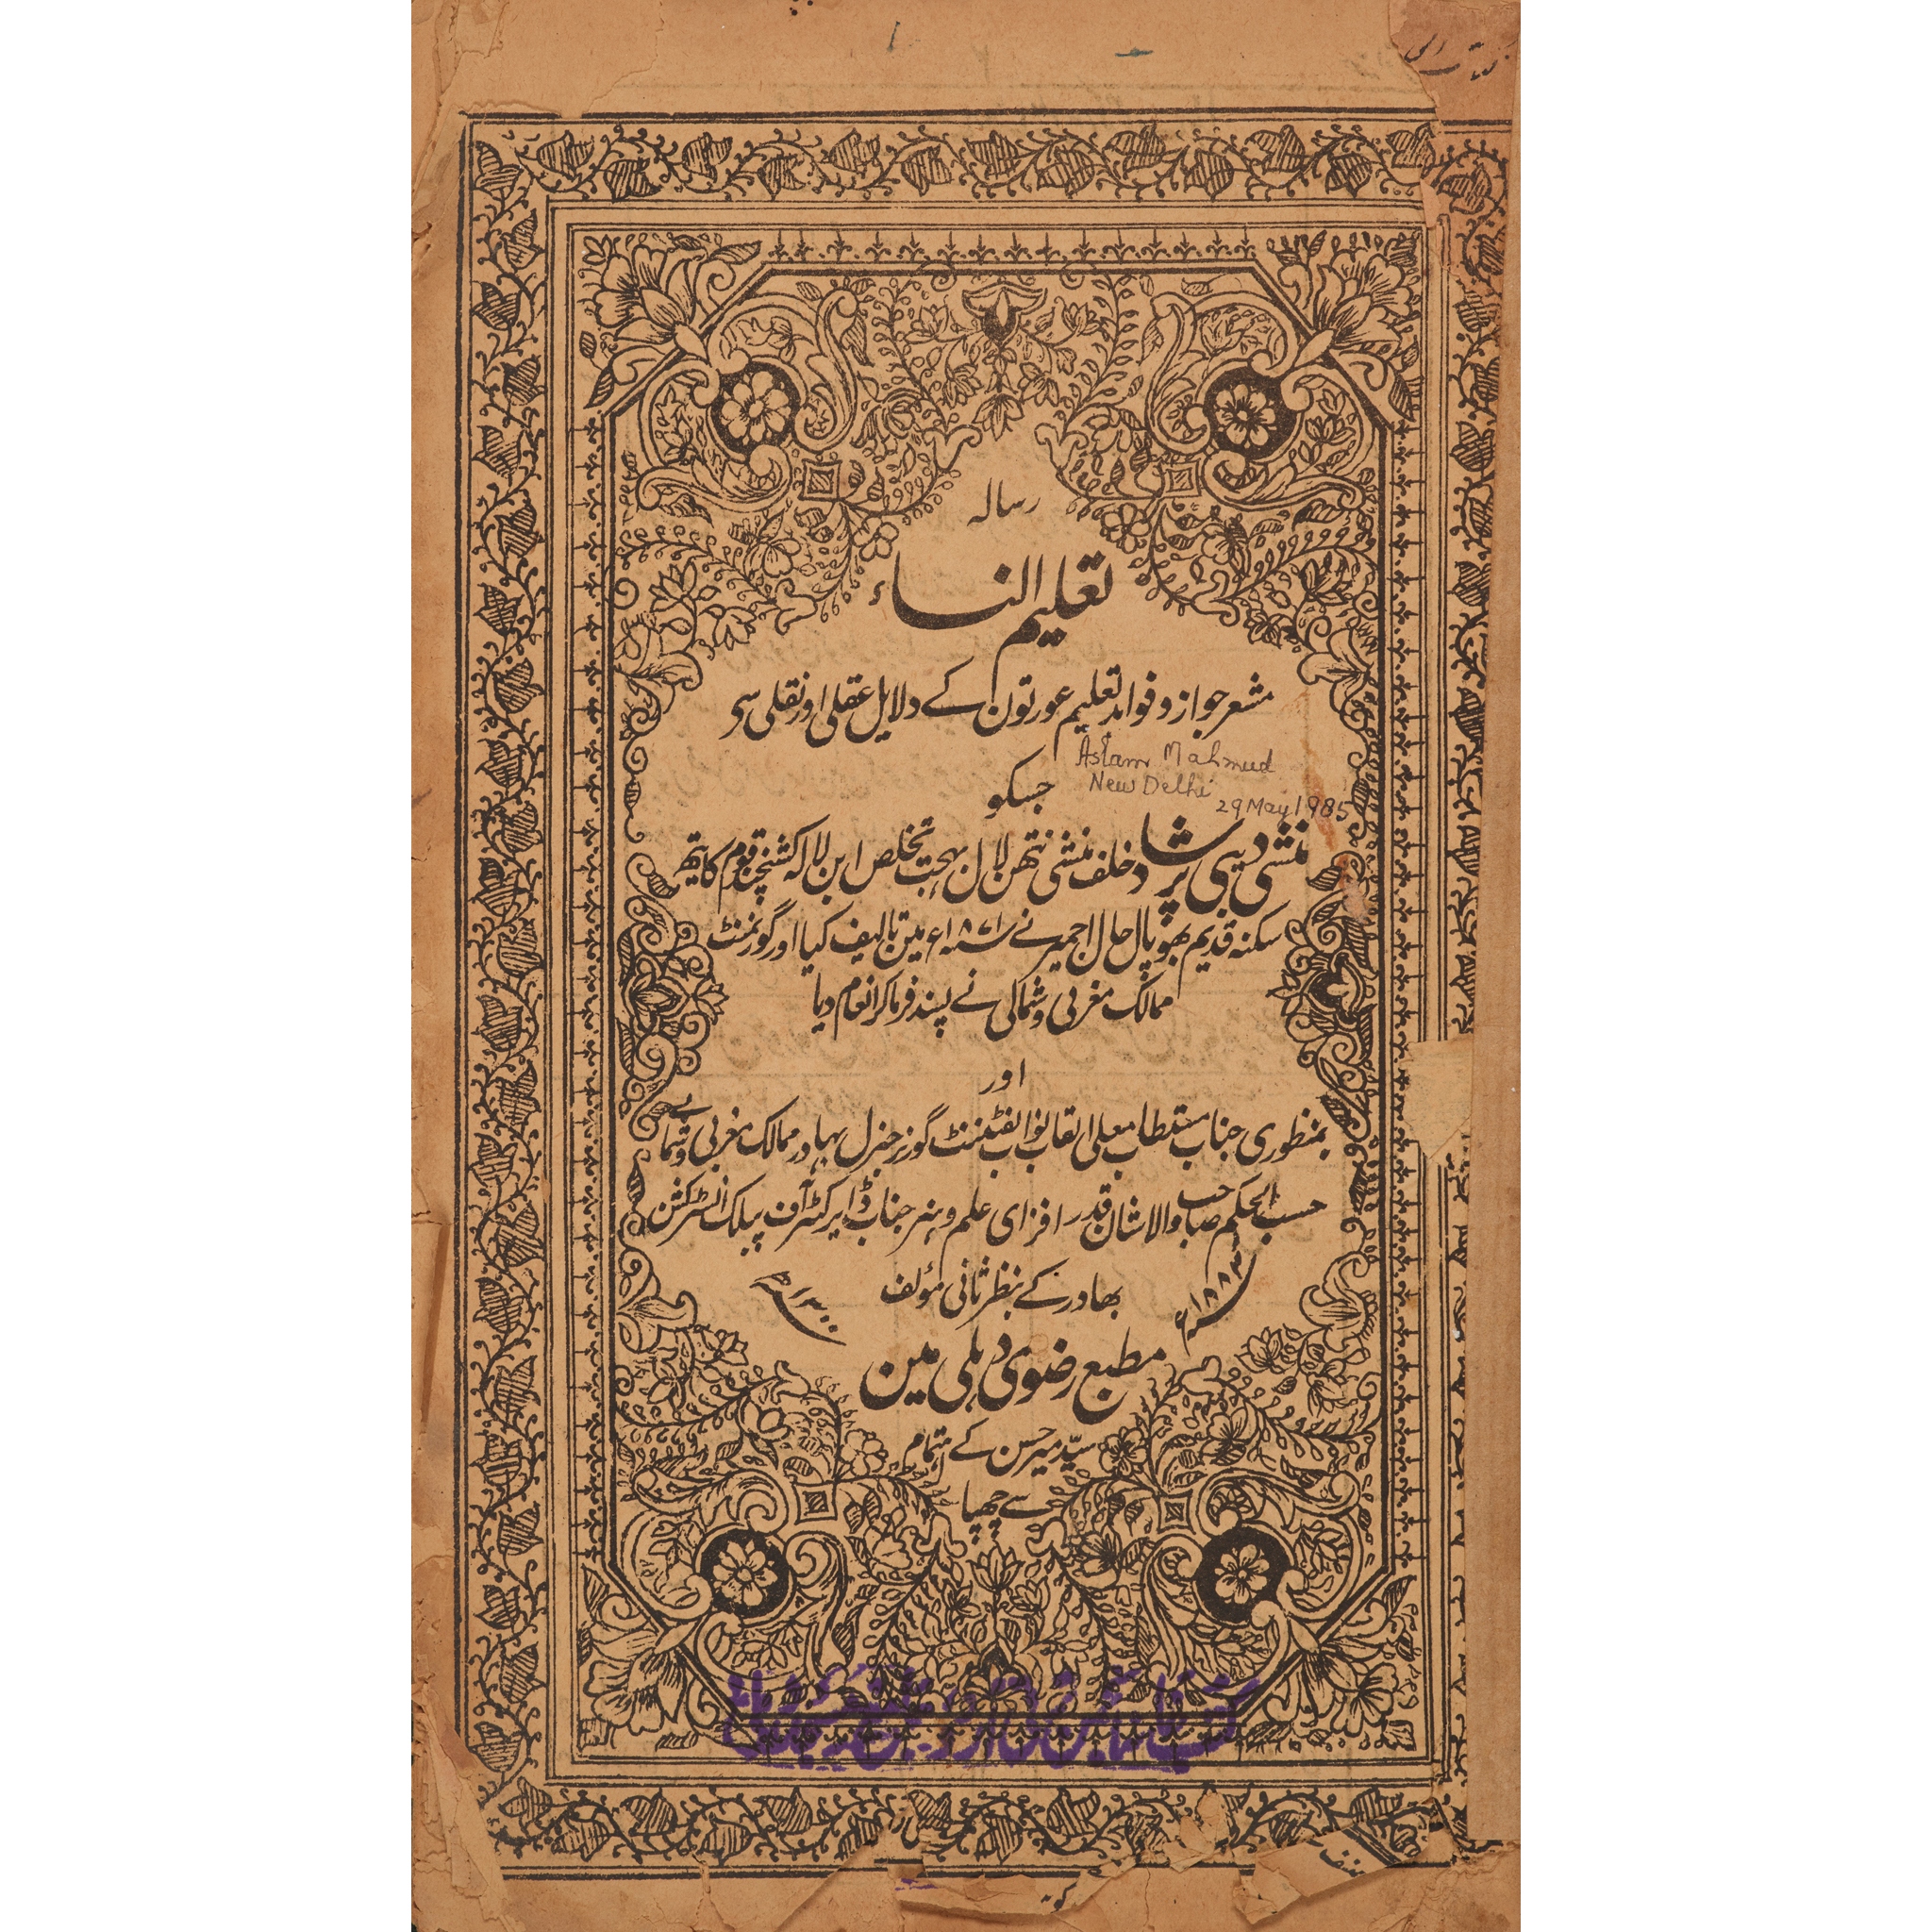 رسالہ
تعلیم النساء
مشعر جواز و فواید تعلیم عورتون کے دلایل عقلی اور نقلی سی
Aslam Mahmud
New Delhi
29 May 1985
جسکو
منشی دیبی پرشاد خلف منشی نتھن لال بہجت تخلص ابن لالہ کشنچند قوم کایتھ
سکنہ قدیم بھوپال حال اجمیر نے ۱۸۷۱؁ء مین تالیف کیا اور گورنمنٹ
ممالک مغربی و شمالی نے پسند فرماکر انعام دیا
اور
بمنظوری جناب مستطاب معلی القاب نواب لفٹیننٹ گورنر جنرل بہادر ممالک مغربی و شمالی
حسب الحکم صاحب والاشان قدر افزای علم و ہنر جناب ڈایرکٹر آف پبلک انسٹرکشن
بھادر کے بنظر ثانی مؤلف
مطبع رضوی دہلی مین
سید میر حسن کے اہتمام
سے چھپا